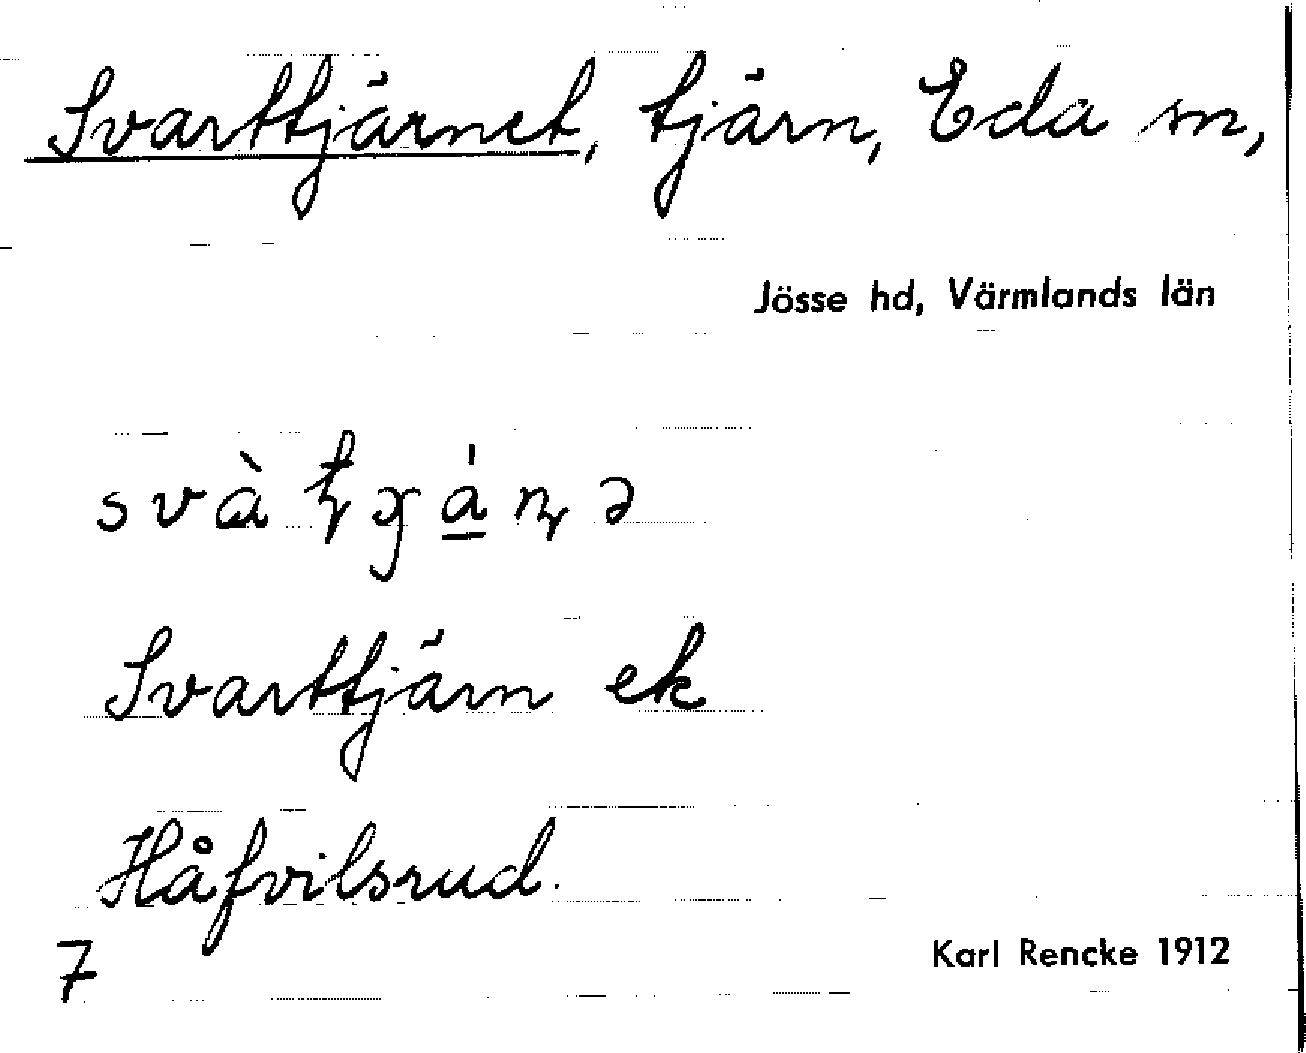 Svarttjärnet, tjärn, Eda sn,
Jösse hd, Värmlands län
Svarttjärn ek
Håfvilsrud.
7
Karl Rencke 1912